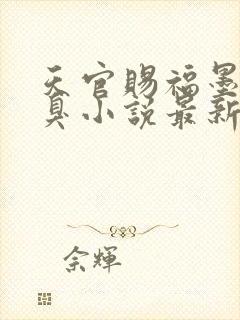 天官賜福墨
臭小說最新
余輝